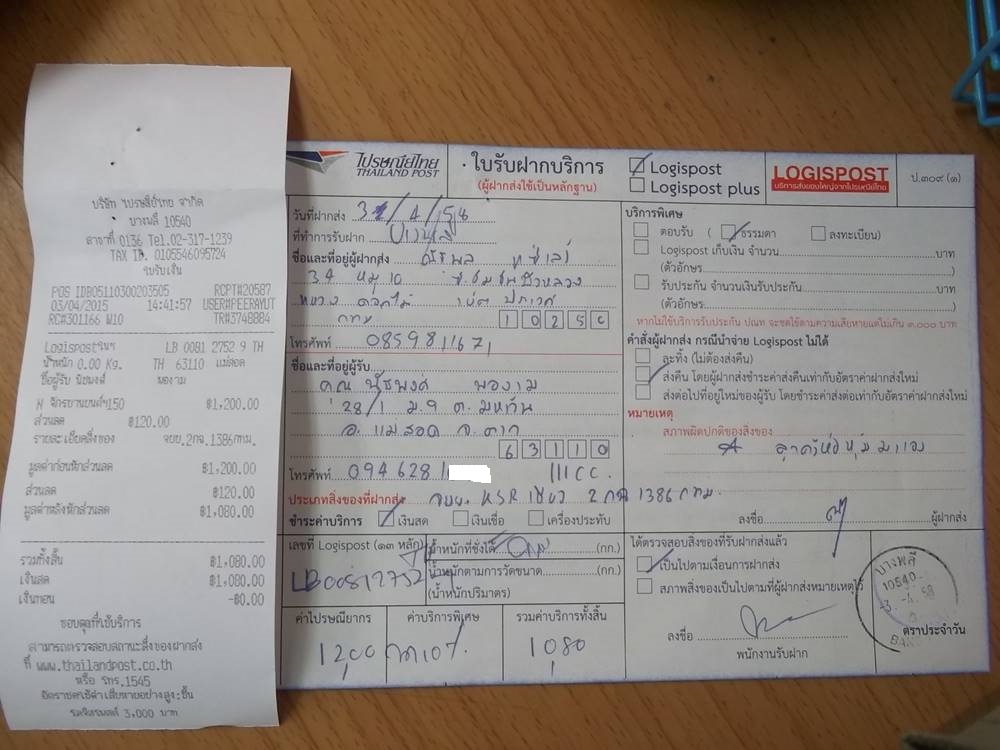 บริษัท ไปรษณีย์ไทย จำกัด
บางพลี 10540
สาขาที่ 0136 Tel.02-317-1239
TAX ID. 0105546095724
ใบรับเงิน
POS ID805110300203505 RCPT#20587
03/04/2015 14:41:57 USER#PEERAYUT
RC#301166 W10 TR#3748884
Logispostในฯ LB 0081 2752 9 TH
น้ำหนัก 0.00 Kg. TH 63110 แม่สอด
ชื่อผู้รับ พองาม
N จักรยานยนต์ฯ150 ฿1,200.00
ส่วนลด ฿120.00
รายละเอียดสิ่งของ จยย.2กจ.1386กทม.
มูลค่าก่อนหักส่วนลด ฿1,200.00
ส่วนลด ฿120.00
มูลค่าหลังหักส่วนลด ฿1,080.00
รวมทั้งสิ้น ฿1,080.00
เงินสด ฿1,080.00
เงินทอน -฿0.00
ขอบคุณที่ใช้บริการ
สามารถตรวจสอบสถานะสิ่งของฝากส่ง
ที่ www.thailandpost.co.th
หรือ โทร.1545
อัตราชดใช้ค่าเสียหายอย่างสูง:ชิ้น
3,000 บาท
ไปรษณีย์ไทย
THAILAND POST
ใบรับฝากบริการ
(ผู้ฝากส่งใช้เป็นหลักฐาน)
Logispost
Logispost plus
LOGISPOST
บริการส่งของใหญ่จากไปรษณีย์ไทย
ป.๓๐๙ (๑)
วันที่ฝากส่ง
ที่ทำการรับฝาก บางพลี
ชื่อและที่อยู่ผู้ฝากส่ง
34 หมู่ 10
แขวง ดอกไม้ เขต ประเวศ
กทม 10250
โทรศัพท์ 0859811671
ชื่อและที่อยู่ผู้รับ
คุณ ณัฐพงศ์ พองาม
28/1 ม.9 ต. มหาวัน
อ. แม่สอด จ. ตาก
63110
โทรศัพท์ 094 6281 111 CC.
ประเภทสิ่งของที่ฝากส่ง จยย. KSR เขียว 2 กจ 1386 กทม.
ชำระค่าบริการ เงินสด เงินเชื่อ เครื่องประทับ
เลขที่ Logispost (๑๓ หลัก)
LB00812752
น้ำหนักที่ชั่งได้ (กก.)
น้ำหนักตามการวัดขนาด (กก.)
(น้ำหนักปริมาตร)
ค่าไปรษณียากร ค่าบริการพิเศษ รวมค่าบริการทั้งสิ้น
1200 ลด10% 1080
บริการพิเศษ
ตอบรับ ( ธรรมดา ลงทะเบียน)
Logispost เก็บเงิน จำนวน บาท
(ตัวอักษร )
รับประกัน จำนวนเงินรับประกัน บาท
(ตัวอักษร )
หากไม่ใช้บริการรับประกัน ปณท จะชดใช้ตามความเสียหายแต่ไม่เกิน ๓,๐๐๐ บาท
คำสั่งผู้ฝากส่ง กรณีนำจ่าย Logispost ไม่ได้
ละทิ้ง (ไม่ต้องส่งคืน)
ส่งคืน โดยผู้ฝากส่งชำระค่าส่งคืนเท่ากับอัตราค่าฝากส่งใหม่
ส่งต่อไปที่อยู่ใหม่ของผู้รับ โดยชำระค่าส่งต่อเท่ากับอัตราค่าฝากส่งใหม่
หมายเหตุ
สภาพผิดปกติของสิ่งของ
ลูกค้าห่อหุ้มมาเอง
ลงชื่อ ผู้ฝากส่ง
ได้ตรวจสอบสิ่งของที่รับฝากส่งแล้ว
เป็นไปตามเงื่อนการฝากส่ง
สภาพสิ่งของเป็นไปตามที่ผู้ฝากส่งหมายเหตุไว้
ลงชื่อ
พนักงานรับฝาก
บางพลี
10540
ตราประจำวัน